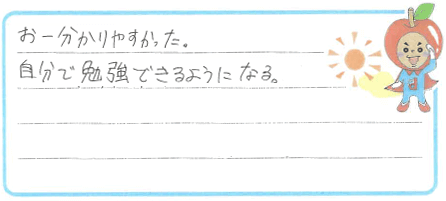 お一分かりやすかった。
自分で勉強できるようになる。